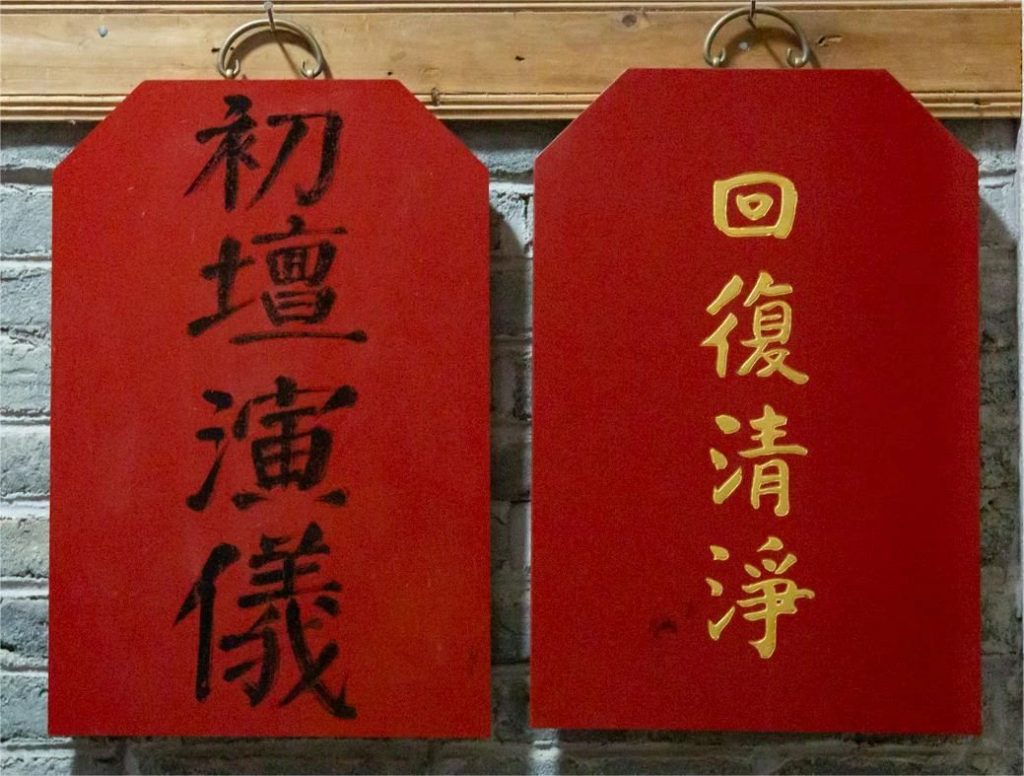 初壇演儀
回復清淨